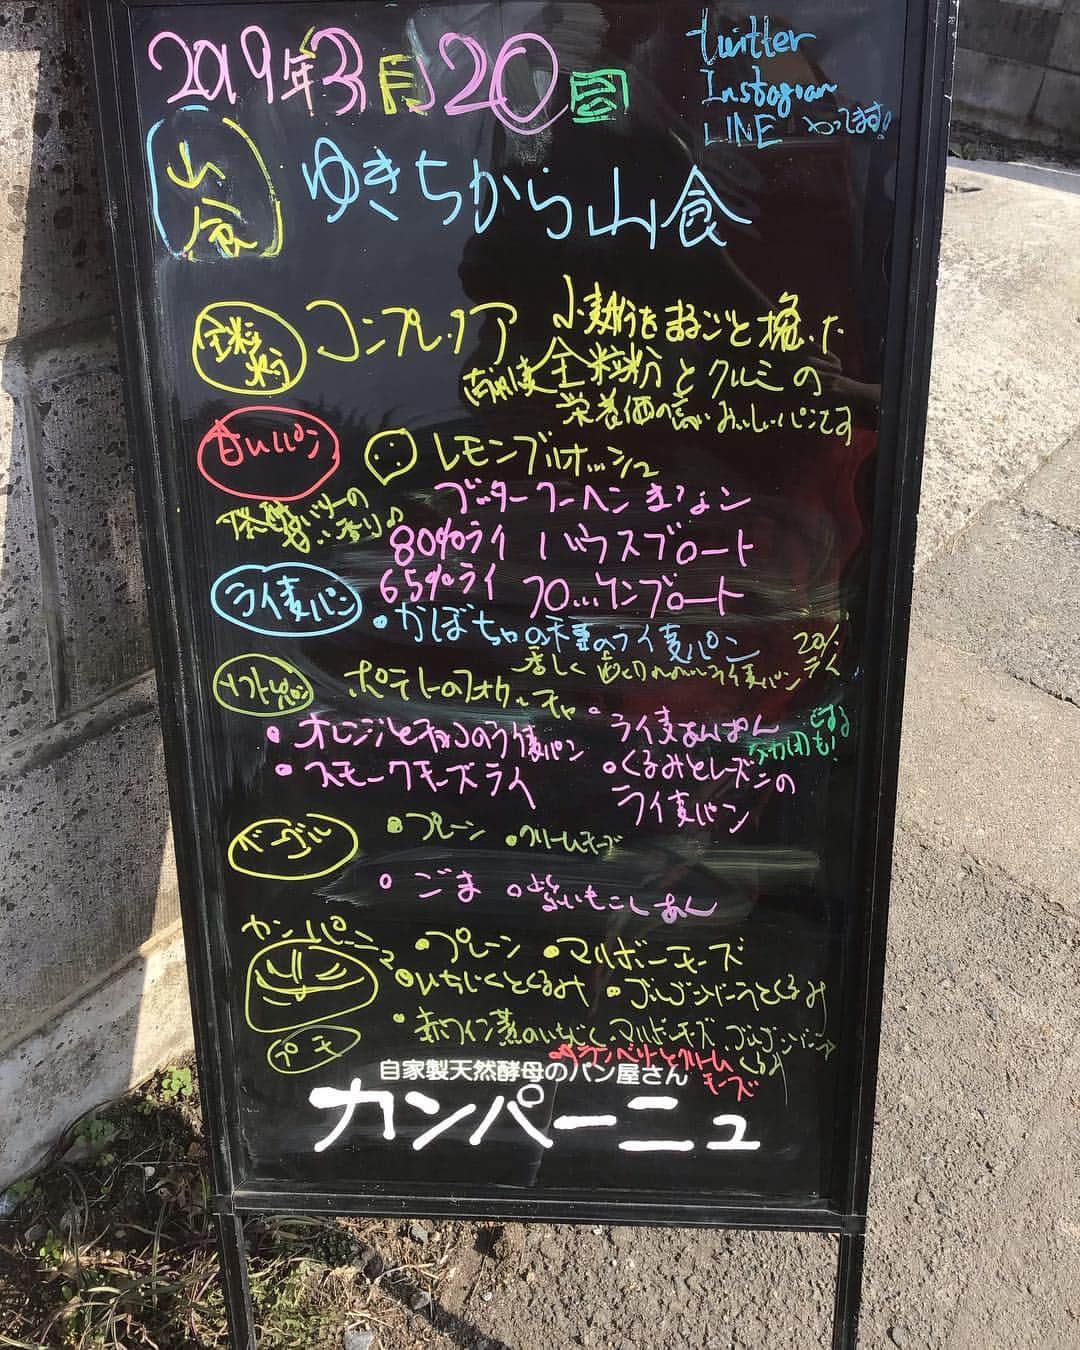 2019年3月20日
twitter
Instagram
LINE やってます!
山食
ゆきちから山食
全粒粉
コンプレノア
小麦粉をまるごと挽いた
全粒粉とクルミの
栄養価の高いおいしいパンです
甘いパン
レモンブリオッシュ
ブッタークーヘン
発酵バターの香り♪
80%ライ バウスブロート
65%ライ フロッケンブロート
ライ麦パン
・かぼちゃの種のライ麦パン
20%ライ
ソフトパン
ポテトのフォカッチャ
・オレンジとチョコのライ麦パン
・ライ麦あんぱん
・スモークチーズライ
・くるみとレーズンの
ライ麦パン
ベーグル
・プレーン ・クリームチーズ
・ごま ・紫いもこしあん
カンパーニュ
・プレーン ・マルボーチーズ
・いちじくとくるみ ・ゴルゴンゾーラとくるみ
プチ
・赤ワイン煮のいちじく、マルボーチーズ、ゴルゴンゾーラ
くるみ
・クランベリーとクリーム
チーズ
自家製天然酵母のパン屋さん
カンパーニュ